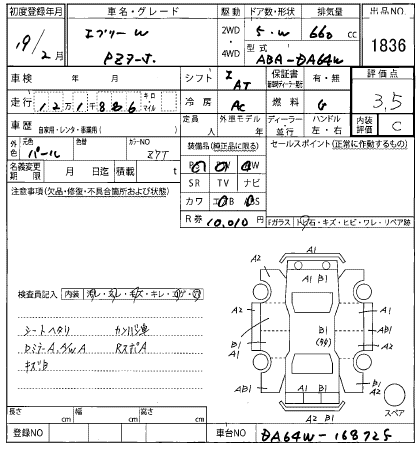 初度登録年月 車名・グレード 駆動 ドア数・形状 排気量 出品NO
19/2月 エブリー W 2WD・4WD 5・W 660 cc 1836
PZターボ. 型式 ABA-DA64W
車検 年 月 シフト I AT 保証書 有・無 評価点
走行 12万1千886 キロ マイル 冷房 AC 燃料 G 3.5
車歴 自家用・レンタ・事業用( ) 定員 人 外車モデル 年 ディーラー 並行 ハンドル 左・右 内装評価 C
外色 元色 パール 色替 カラーNO Z7T
装備品(純正品に限る) セールスポイント(正常に作動するもの)
名義変更期限 月 日迄 積載 t
SR TV ナビ
注意事項(欠品・修復・不具合箇所および状態)
カワ
R券 10,010円
Fガラス トビ石・キズ・ヒビ・ワレ・リペア跡
検査員記入 内装
シートヘタリ カンバン車
Dミラー A, A/W A RスポA
キズ多
A1
A2 A1 B1 A2
B1 A1 B1 (多) B1 A1
AB1 AB1
A1
A2 B1
スペア
長さ cm 幅 cm 高さ cm
登録NO 車台NO DA64W-168725